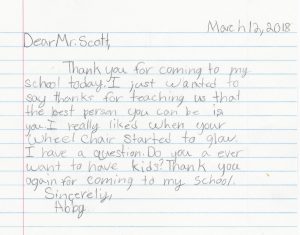 March 12, 2018
Dear Mr. Scott,
Thank you for coming to my
school today. I just wanted to
say thanks for teaching us that
the best person you can be is
you. I really liked when your
wheel chair started to glow.
I have a question. Do you a ever
want to have kids? Thank you
again for coming to my school.
Sincerely,
Abby